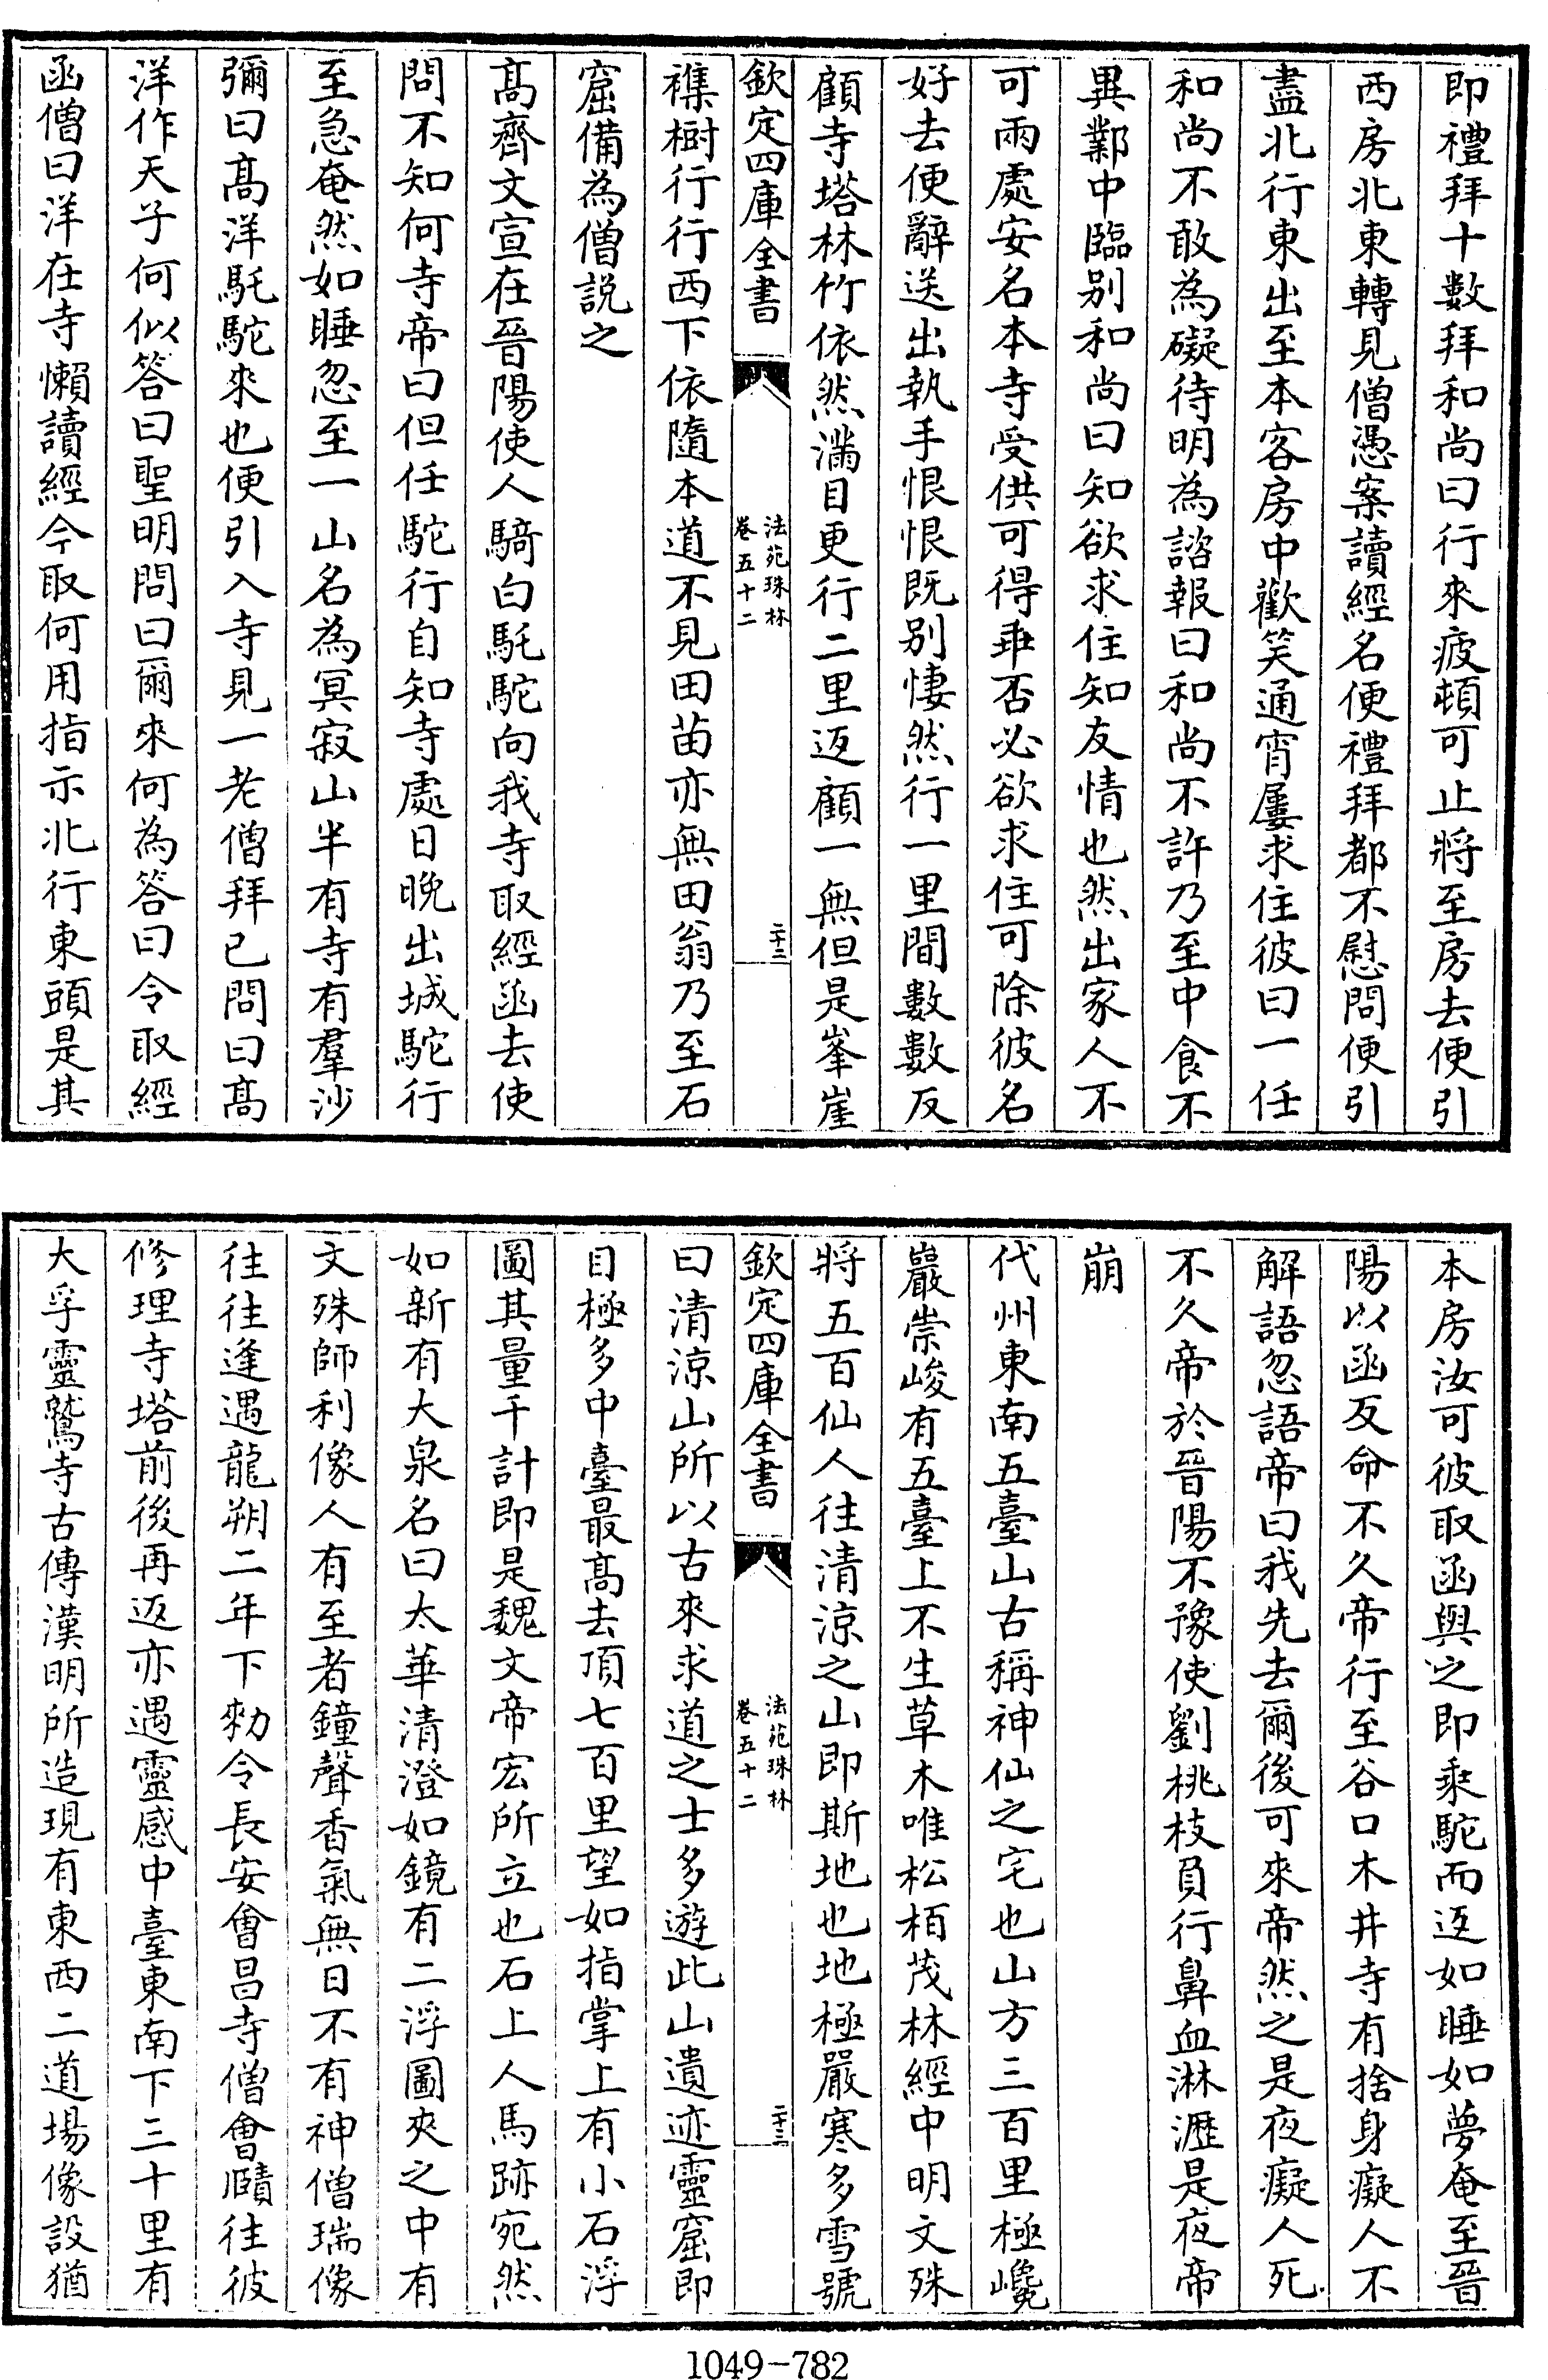 即禮拜十數拜和尚曰行來疲頓可止將至房去便引
西房北東轉見僧憑案讀經名便禮拜都不慰問便引
盡北行東出至本客房中歡笑通宵屢求住彼曰一任
和尚不敢為礙待明為諮報曰和尚不許乃至中食不
異鄴中臨别和尚曰知欲求住知友情也然出家人不
可兩處安名本寺受供可得乖否必欲求住可除彼名
好去便辭送出執手恨恨既别悽然行一里間數數反
顧寺塔林竹依然滿目更行二里返顧一無但是峯崖
欽定四庫全書
法苑珠林
卷五十二
二十三
襍樹行行西下依隨本道不見田苗亦無田翁乃至石
窟備為僧説之
髙齊文宣在晉陽使人騎白馲駝向我寺取經函去使
問不知何寺帝曰但任駝行自知寺處日晚出城駝行
至急奄然如睡忽至一山名為冥寂山半有寺有羣沙
彌曰髙洋馲駝來也便引入寺見一老僧拜已問曰髙
洋作天子何似答曰聖明問曰爾來何為答曰令取經
函僧曰洋在寺懶讀經今取何用指示北行東頭是其
本房汝可彼取函與之即乘駝而返如睡如夢奄至晉
陽以函反命不久帝行至谷口木井寺有捨身癡人不
解語忽語帝曰我先去爾後可來帝然之是夜癡人死
不久帝於晉陽不豫使劉桃枝負行鼻血淋瀝是夜帝
崩
代州東南五臺山古稱神仙之宅也山方三百里極巉
巖崇峻有五臺上不生草木唯松栢茂林經中明文殊
將五百仙人往清涼之山即斯地也地極嚴寒多雪號
欽定四庫全書
法苑珠林
卷五十二
二十三
曰清涼山所以古來求道之士多遊此山遺迹靈窟即
目極多中臺最髙去頂七百里望如指掌上有小石浮
圖其量千計即是魏文帝宏所立也石上人馬跡宛然
如新有大泉名曰太華清澄如鏡有二浮圖夾之中有
文殊師利像人有至者鐘聲香氣無日不有神僧瑞像
往往逢遇龍朔二年下勑令長安會昌寺僧會賾往彼
修理寺塔前後再返亦遇靈感中臺東南下三十里有
大孚靈鷲寺古傳漢明所造現有東西二道場像設猶
1049-782